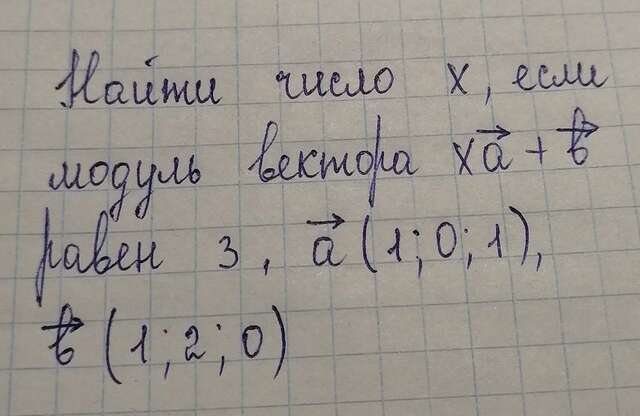 Найти число x, если
модуль вектора xa⃗ + b⃗
равен 3, a⃗ (1; 0; 1),
b⃗ (1; 2; 0)